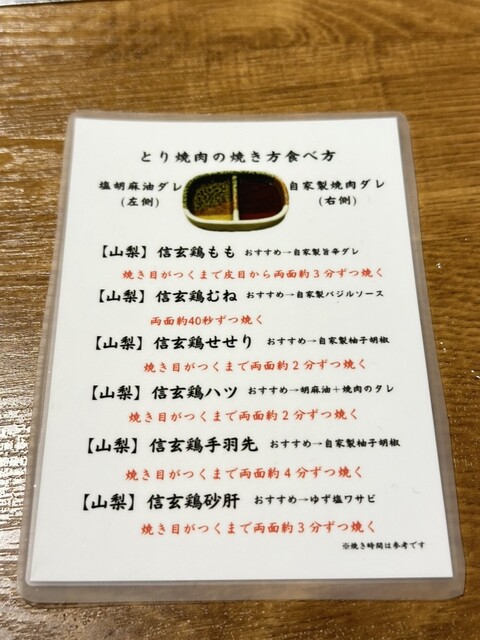 とり焼肉の焼き方食べ方
塩胡麻油ダレ 自家製焼肉ダレ
(左側) (右側)
【山梨】信玄鶏もも おすすめ→自家製旨辛ダレ
焼き目がつくまで皮目から両面約3分ずつ焼く
【山梨】信玄鶏むね おすすめ→自家製バジルソース
両面約40秒ずつ焼く
【山梨】信玄鶏せせり おすすめ→自家製柚子胡椒
焼き目がつくまで両面約2分ずつ焼く
【山梨】信玄鶏ハツ おすすめ→胡麻油+焼肉のタレ
焼き目がつくまで両面約2分ずつ焼く
【山梨】信玄鶏手羽先 おすすめ→自家製柚子胡椒
焼き目がつくまで両面約4分ずつ焼く
【山梨】信玄鶏砂肝 おすすめ→ゆず塩ワサビ
焼き目がつくまで両面約3分ずつ焼く
※焼き時間は参考です